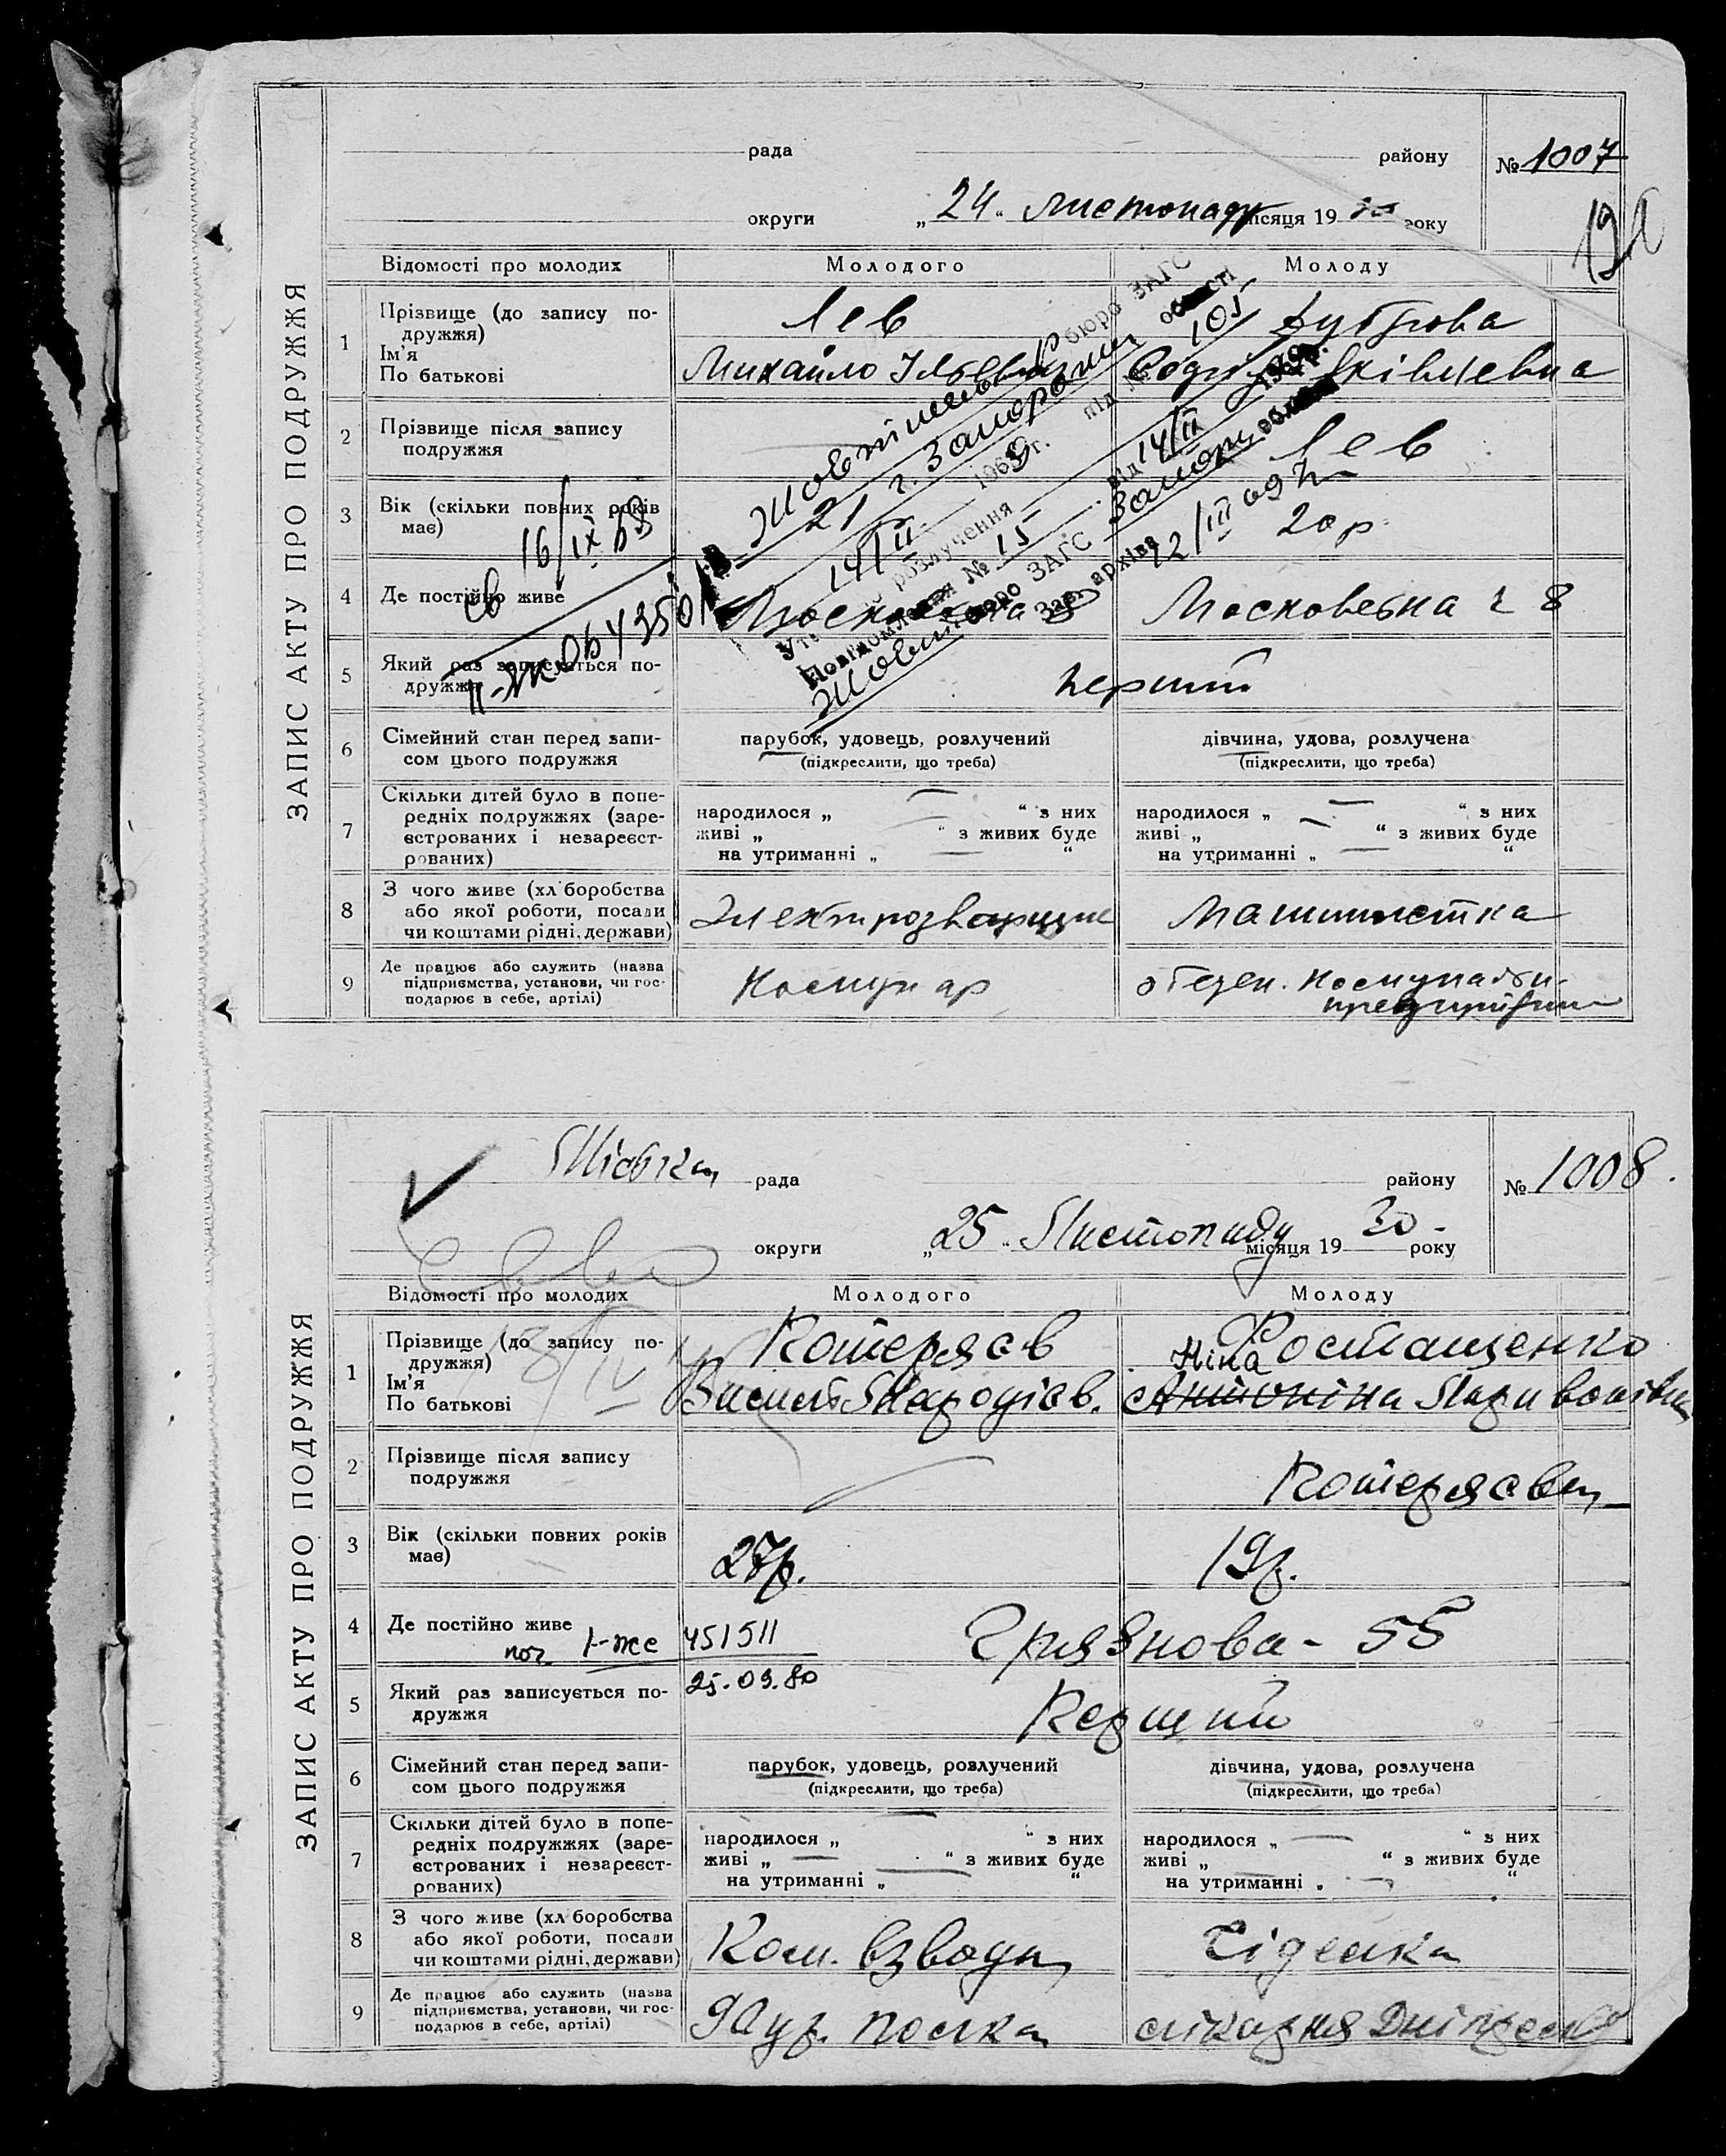 ЗАПИС АКТУ ПРО ПОДРУЖЖЯ
рада району № 1007
округи „24“ листопаду місяця 19 року
Відомості про молодих Молодого Молоду
1 Прізвище (до запису по-
дружжя) Лев
Ім'я
По батькові Михайло
2 Прізвище після запису
подружжя Лев
3 Вік (скільки повних років
має) 21 20 р
16/IX 68
4 Де постійно живе Московська 8 Московська 8
св
5 Який раз записується по-
дружжя перший
6 Сімейний стан перед запи-
сом цього подружжя
парубок, удовець, розлучений
(підкреслити, що треба)
дівчина, удова, розлучена
(підкреслити, що треба)
7 Скільки дітей було в попе-
редніх подружжях (заре-
єстрованих і незареєст-
рованих)
народилося „ — “ з них
живі „ “ з живих буде
на утриманні „ — “
народилося „ — “ з них
живі „ — “ з живих буде
на утриманні „ — “
8 З чого живе (хл боробства
або якої роботи, посади
чи коштами рідні, держави)
Машинистка
9 Де працює або служить (назва
підприємства, установи, чи гос-
подарює в себе, артілі)
Комунар
бюро ЗАГС
г. Запорожжі області
14/II 1969 г. під № 105
розлучення від 14/II
Повідомлення № 15
бюро ЗАГС області
Зав. архіва
12/III 69
ЗАПИС АКТУ ПРО ПОДРУЖЖЯ
Міська рада району № 1008
округи „25“ Листопаду місяця 19 30 року
Відомості про молодих Молодого Молоду
1 Прізвище (до запису по-
дружжя) Котеряєв Ростащенко
Ім'я Ніна
По батькові Антоніна
2 Прізвище після запису
подружжя Котеряєва
3 Вік (скільки повних років
має) 27р. 19р.
4 Де постійно живе Грязнова - 55
пов. I-же 451511
25.09.80
5 Який раз записується по-
дружжя Перший
6 Сімейний стан перед запи-
сом цього подружжя
парубок, удовець, розлучений
(підкреслити, що треба)
дівчина, удова, розлучена
(підкреслити, що треба)
7 Скільки дітей було в попе-
редніх подружжях (заре-
єстрованих і незареєст-
рованих)
народилося „ — “ з них
живі „ — “ з живих буде
на утриманні „ — “
народилося „ — “ з них
живі „ “ з живих буде
на утриманні „ — “
8 З чого живе (хл боробства
або якої роботи, посади
чи коштами рідні, держави)
Ком. взвода
9 Де працює або служить (назва
підприємства, установи, чи гос-
подарює в себе, артілі)
полка